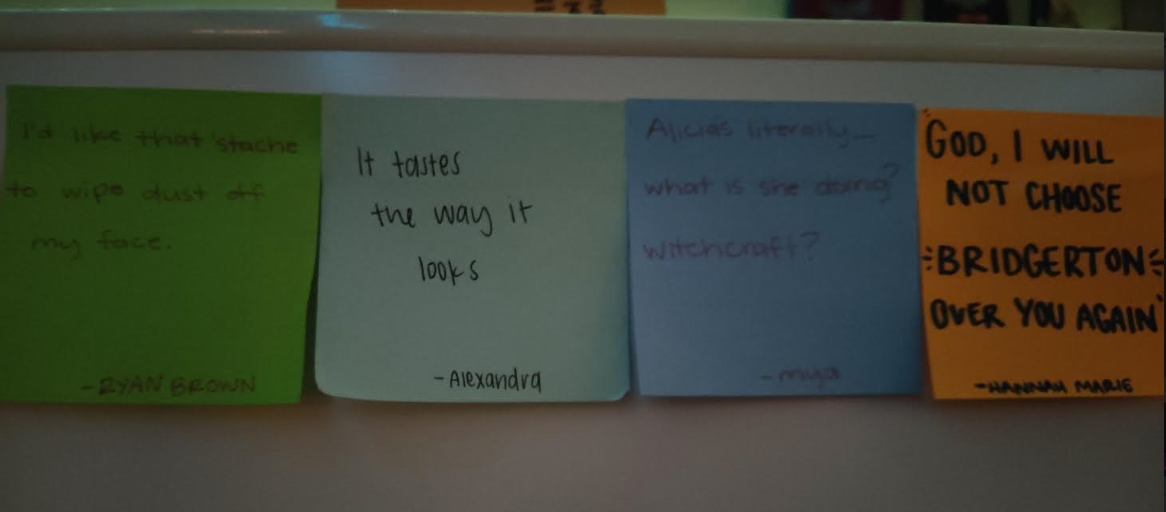 I'd like that 'stache
to wipe dust off
my face.
-RYAN BROWN
It tastes
the way it
looks
-Alexandra
Alicia's literally—
what is she doing?
witchcraft?
-mya
"GOD, I WILL
NOT CHOOSE
BRIDGERTON
OVER YOU AGAIN"
-HANNAH MARIE